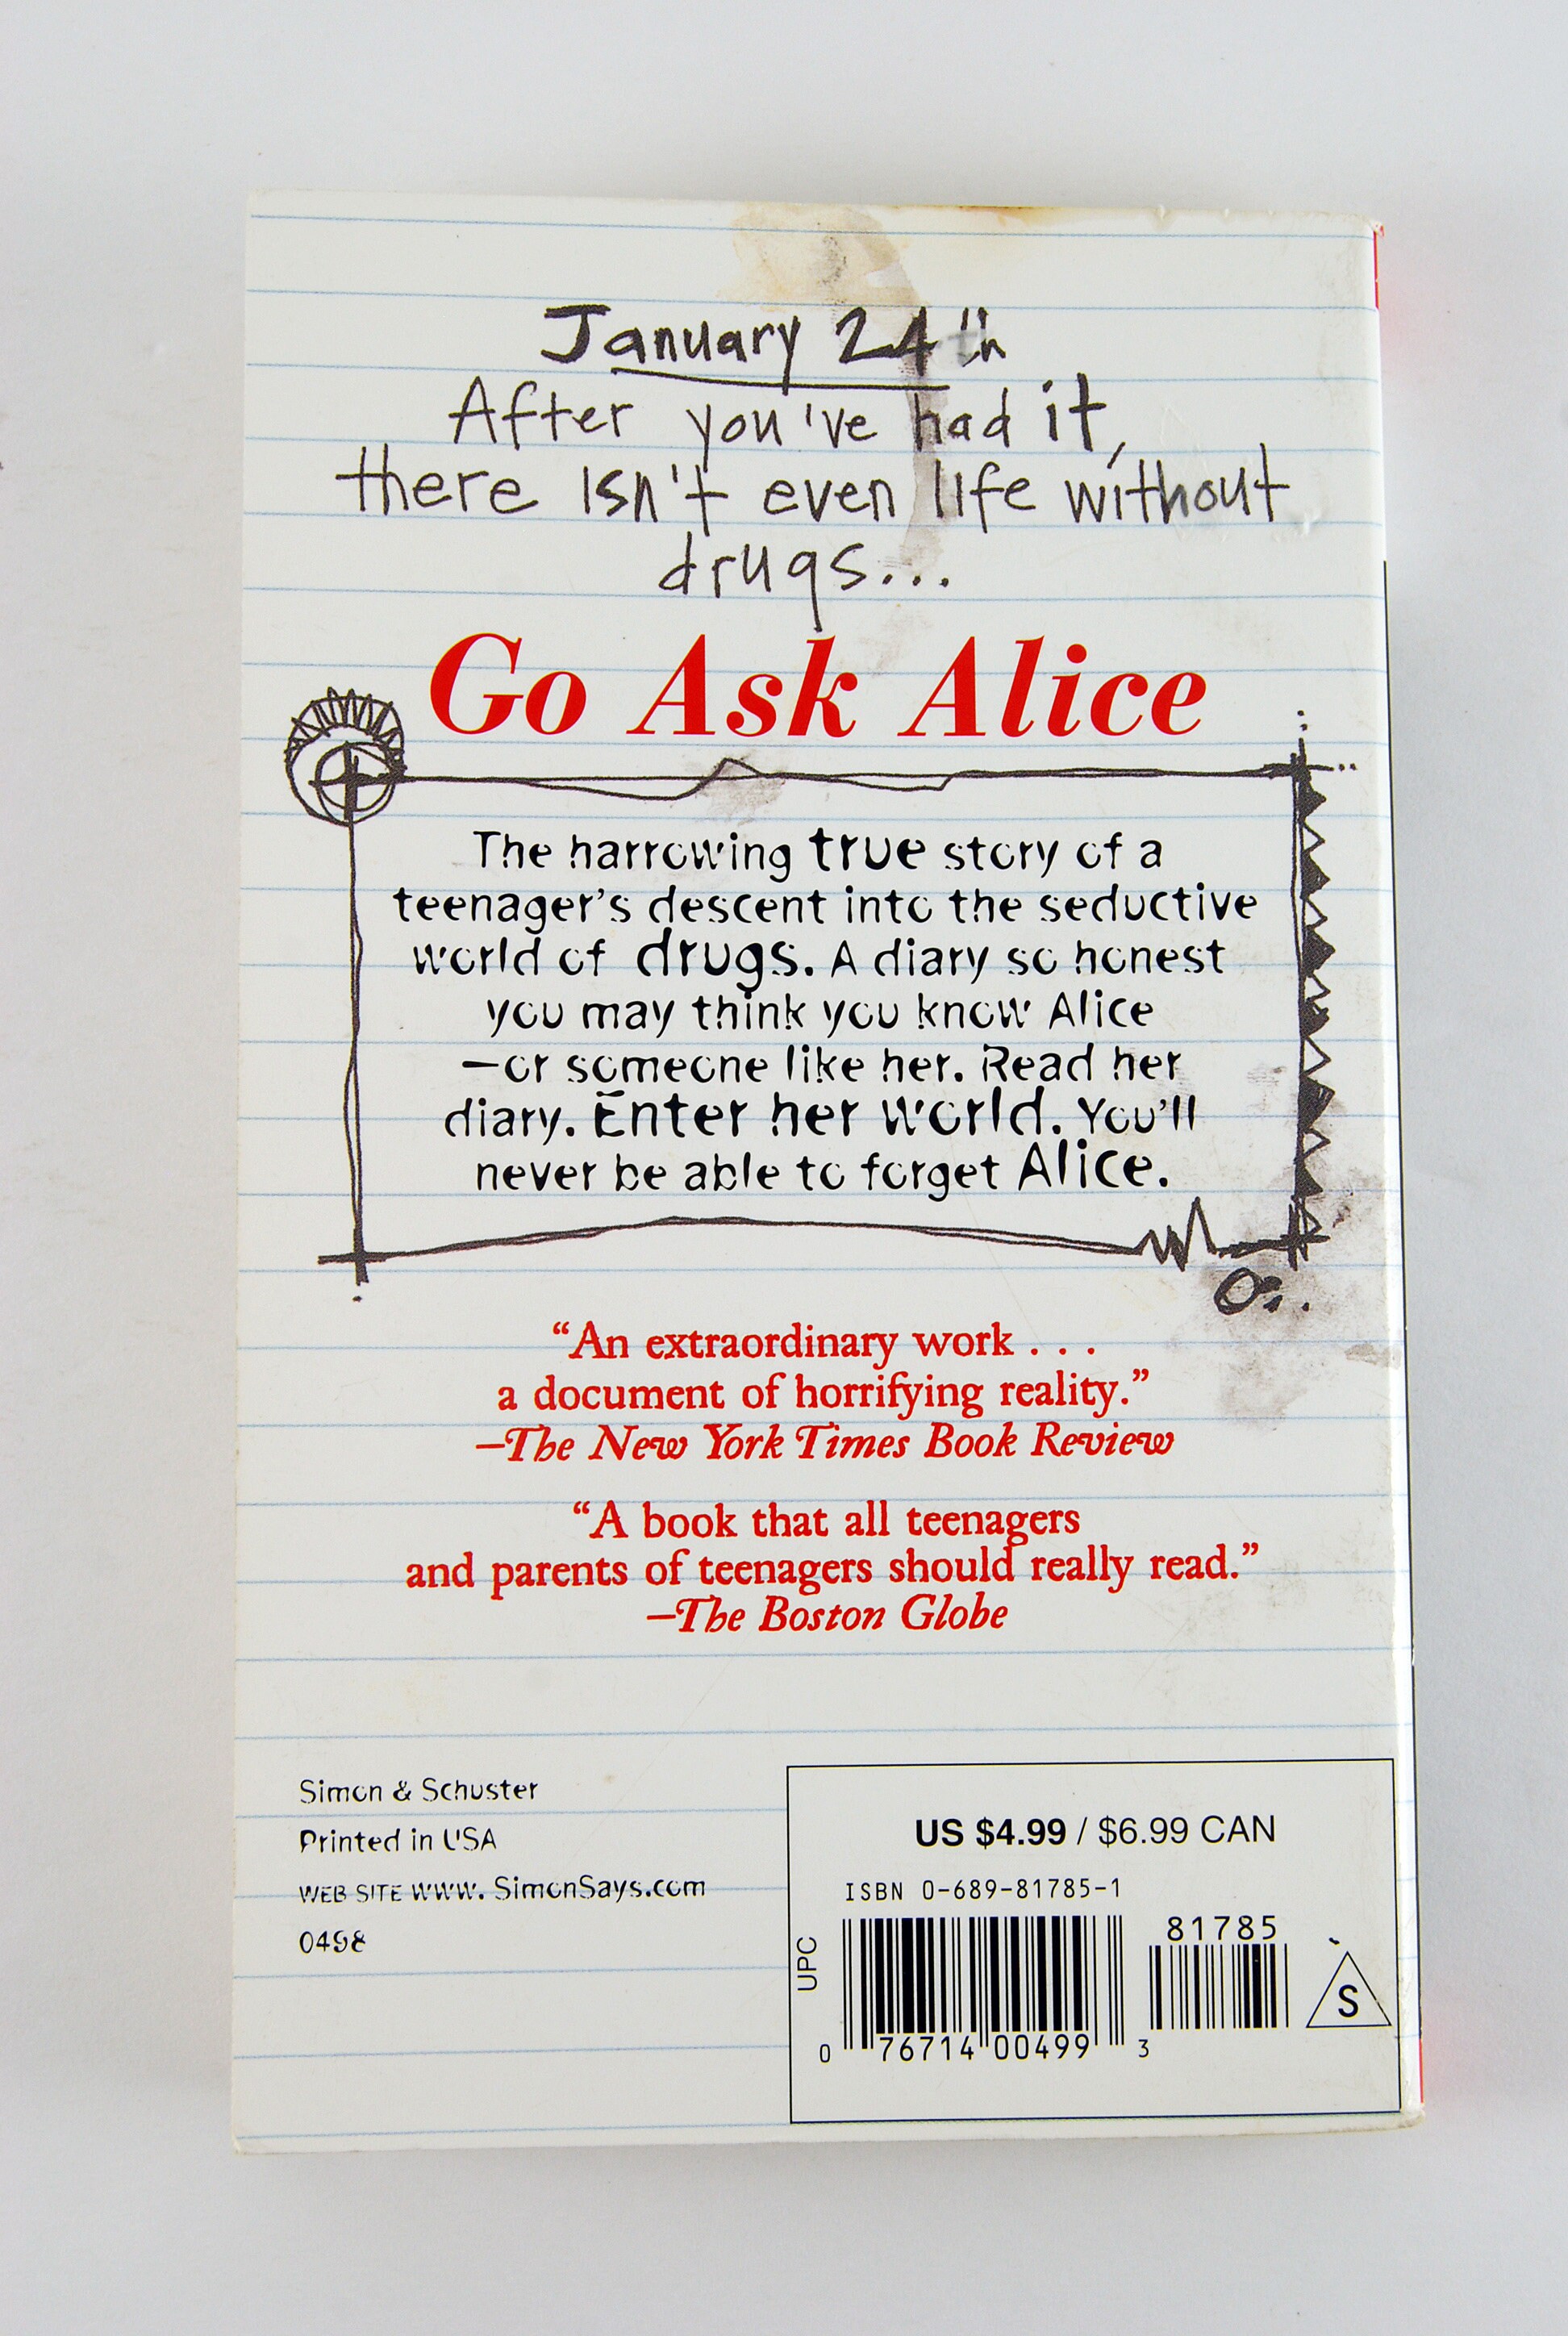 January 24th
After you've had it,
there isn't even life without
drugs...
Go Ask Alice
The harrowing true story of a
teenager's descent into the seductive
world of drugs. A diary so honest
you may think you know Alice
—or someone like her. Read her
diary. Enter her world. You'll
never be able to forget Alice.
“An extraordinary work . . .
a document of horrifying reality.”
—The New York Times Book Review
“A book that all teenagers
and parents of teenagers should really read.”
—The Boston Globe
Simon & Schuster
Printed in USA
WEB SITE www.SimonSays.com
0498
US $4.99 / $6.99 CAN
ISBN 0-689-81785-1
81785
UPC
S
0 76714 00499 3